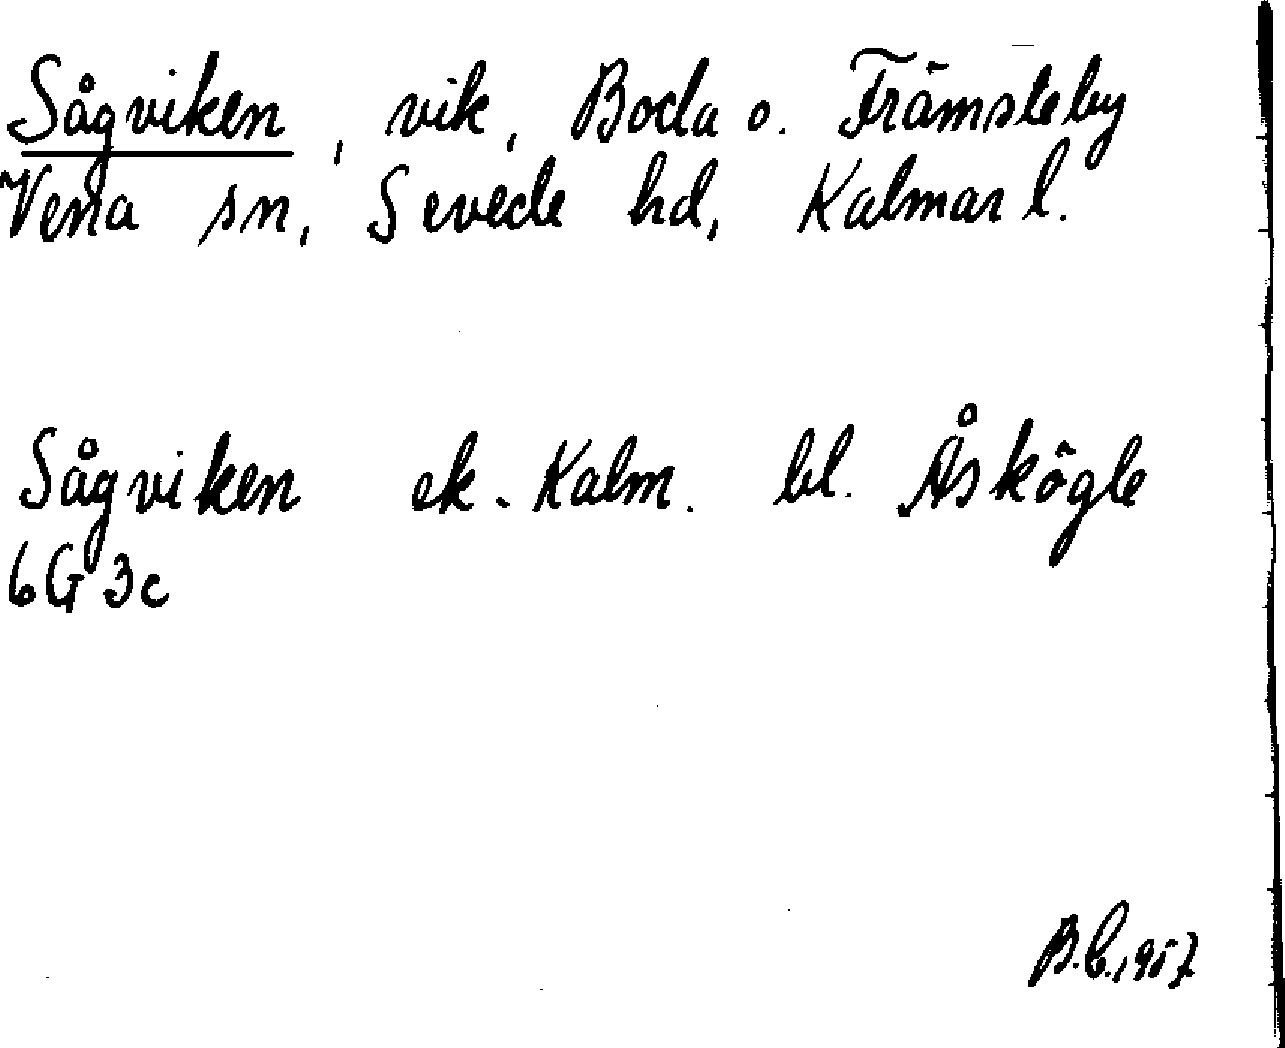 Sågviken, vik, Boda o. Främsteby
Vena sn, Sevede hd, Kalmar l.
Sågviken ek. Kalm. bl. Åskögle
6G 3c
B.C. 1957